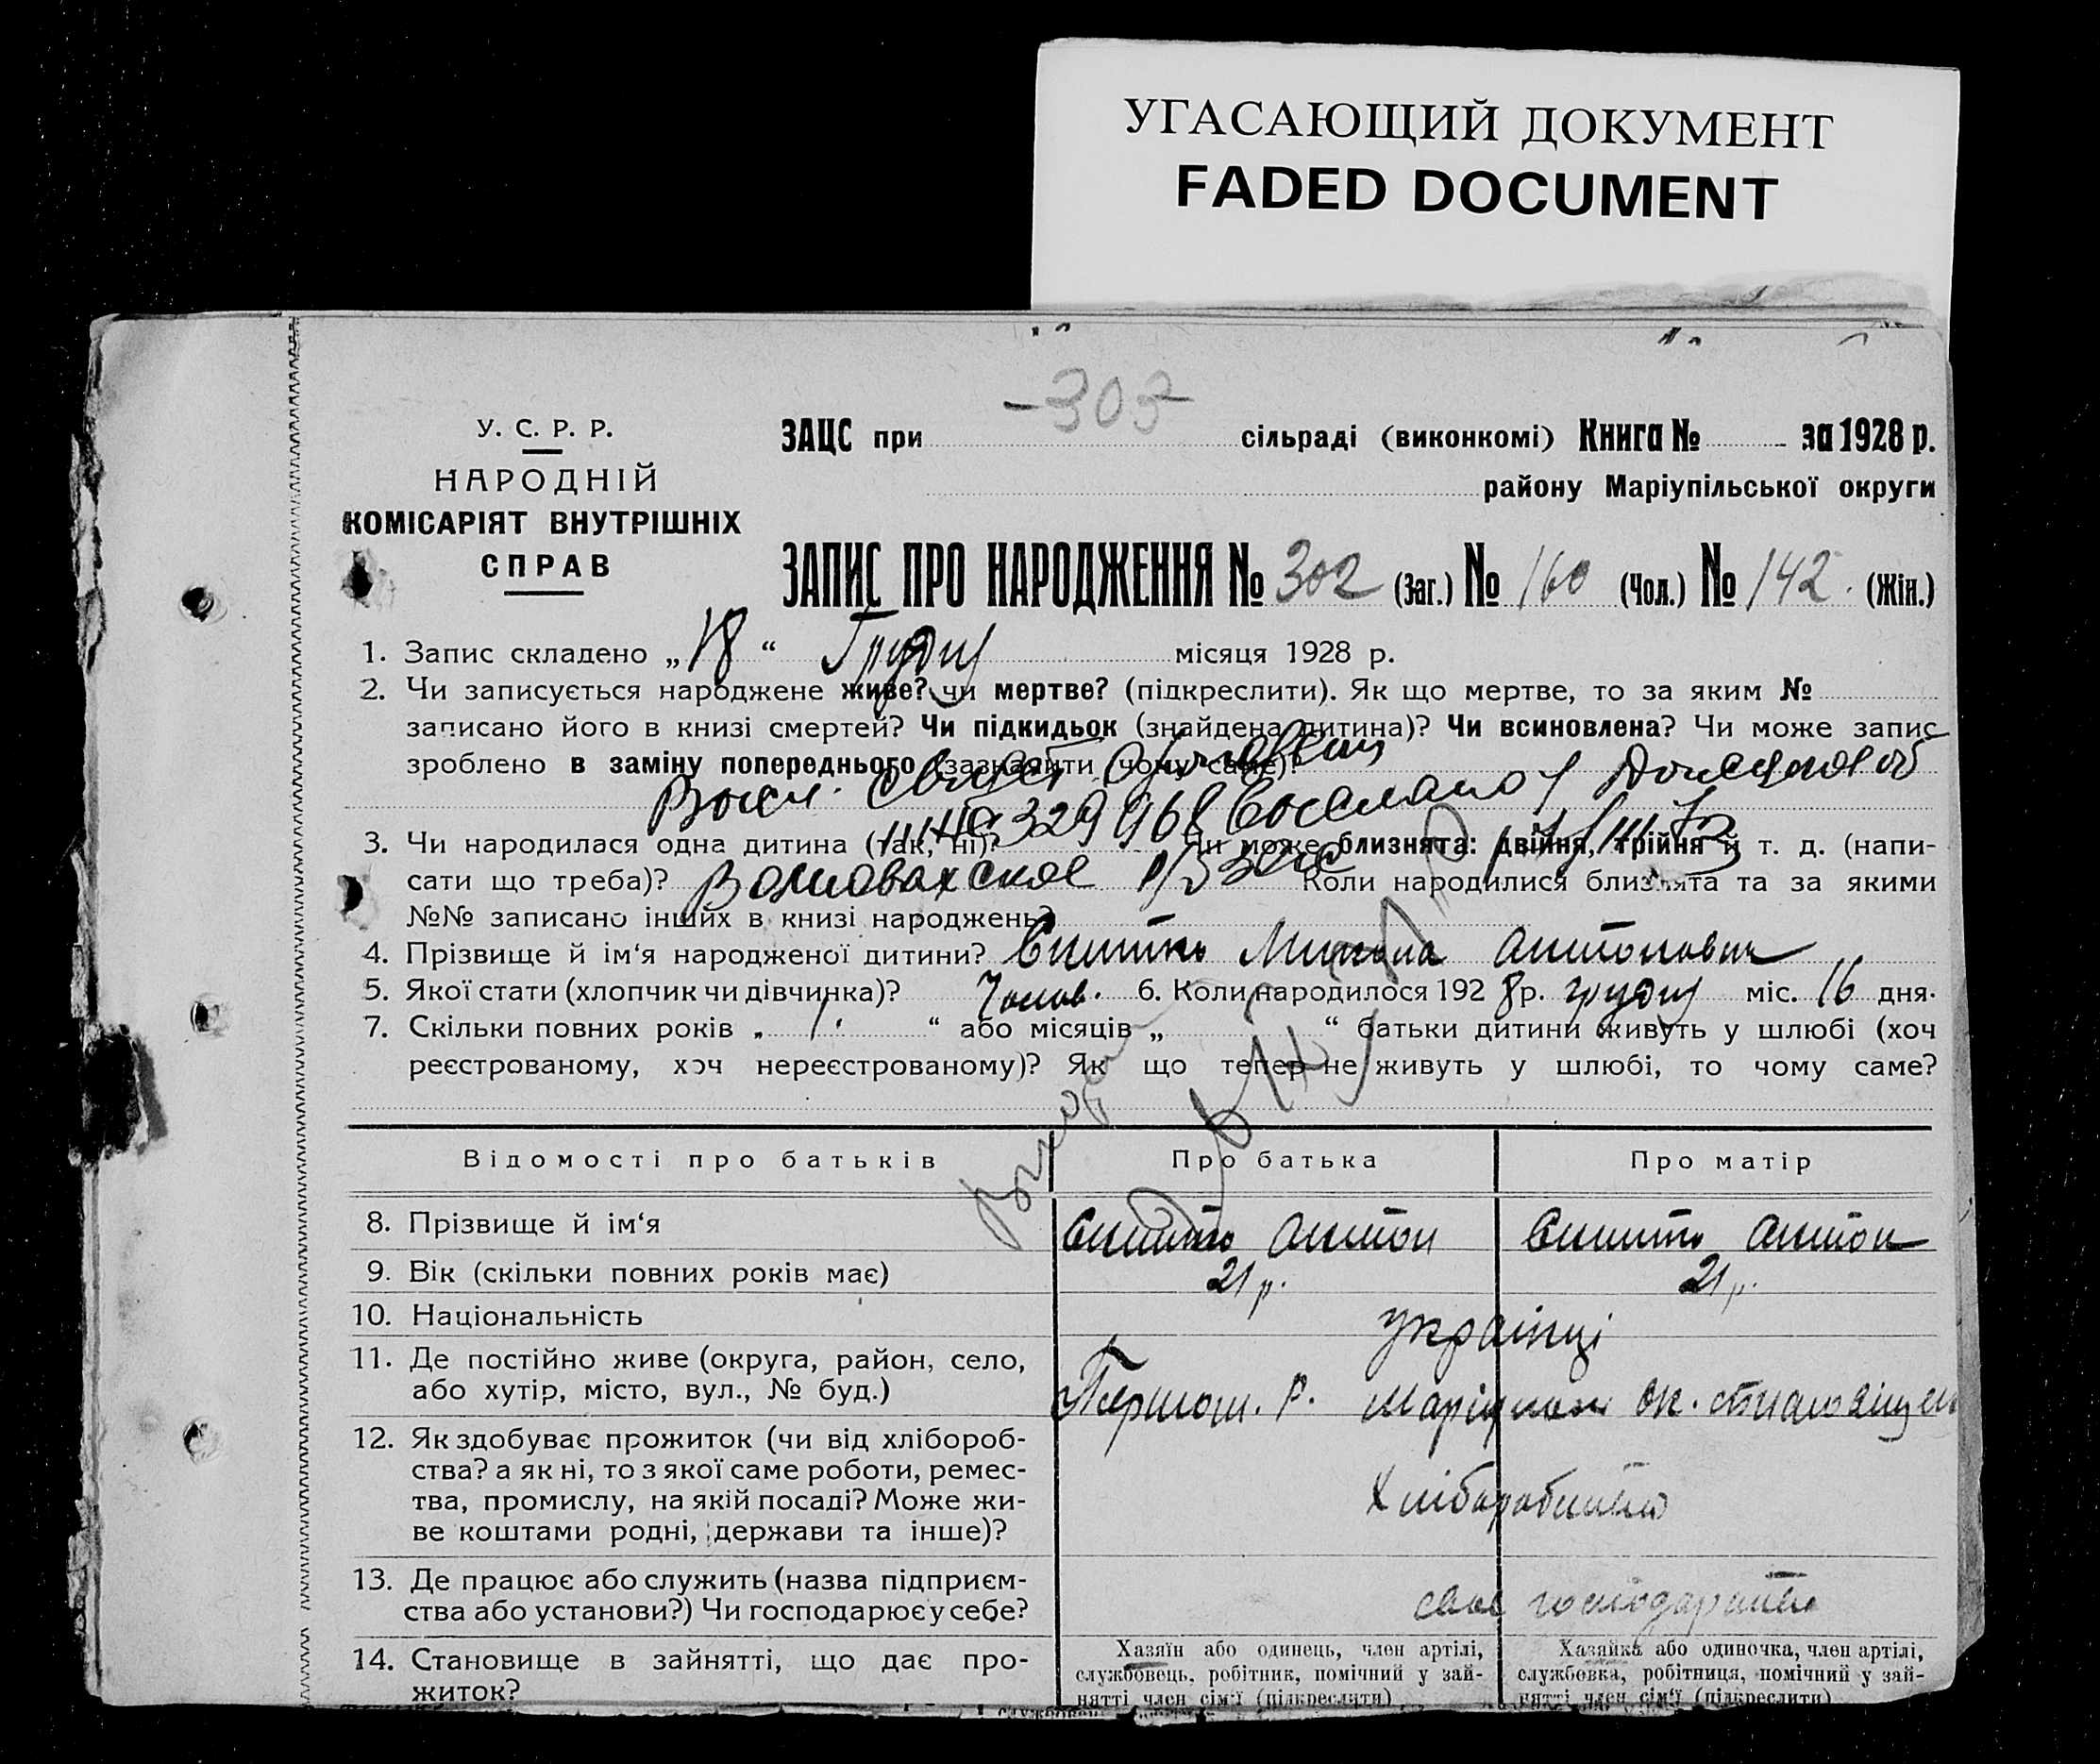 УГАСАЮЩИЙ ДОКУМЕНТ
FADED DOCUMENT
-303-
У. С. Р. Р.
НАРОДНІЙ
КОМІСАРІЯТ ВНУТРІШНІХ
СПРАВ
ЗАЦС при сільраді (виконкомі) Книга № за 1928 р.
району Маріупільської округи
ЗАПИС ПРО НАРОДЖЕННЯ № 302 (Заг.) № 160 (Чол.) № 142 (Жін.)
1. Запис складено „18“ Грудня місяця 1928 р.
2. Чи записується народжене живе? чи мертве? (підкреслити). Як що мертве, то за яким №
записано його в книзі смертей? Чи підкидьок (знайдена дитина)? Чи всиновлена? Чи може запис
зроблено в заміну попереднього (зазначити чому саме)?
№ 329968
3. Чи народилася одна дитина (так, ні)? Чи може близнята: двійня, трійня й т. д. (напи-
сати що треба)? Волновахское р/б загс Коли народилися близнята та за якими
№№ записано інших в книзі народжень?
4. Прізвище й ім'я народженої дитини? Микола Антонович
5. Якої стати (хлопчик чи дівчинка)? Чолов. 6. Коли народилося 1928 р. грудня міс. 16 дня.
7. Скільки повних років „ 1. “ або місяців „ “ батьки дитини живуть у шлюбі (хоч
реєстрованому, хоч нереєстрованому)? Як що тепер не живуть у шлюбі, то чому саме?
Відомості про батьків Про батька Про матір
8. Прізвище й ім'я Антон Антон
9. Вік (скільки повних років має) 21 р. 21 р.
10. Національність українці
11. Де постійно живе (округа, район, село,
або хутір, місто, вул., № буд.)
12. Як здобуває прожиток (чи від хлібороб-
ства? а як ні, то з якої саме роботи, ремес-
тва, промислу, на якій посаді? Може жи-
ве коштами родні, держави та інше)?
Хліборобство
13. Де працює або служить (назва підприєм-
ства або установи?) Чи господарює у себе?
своє господарство
14. Становище в зайнятті, що дає про-
житок?
Хазяїн або одинець, член артілі,
службовець, робітник, помічний у зай-
нятті член сім'ї (підкреслити)
Хазяйка або одиночка, член артілі,
службовка, робітниця, помічний у зай-
нятті член сім'ї (підкреслити)